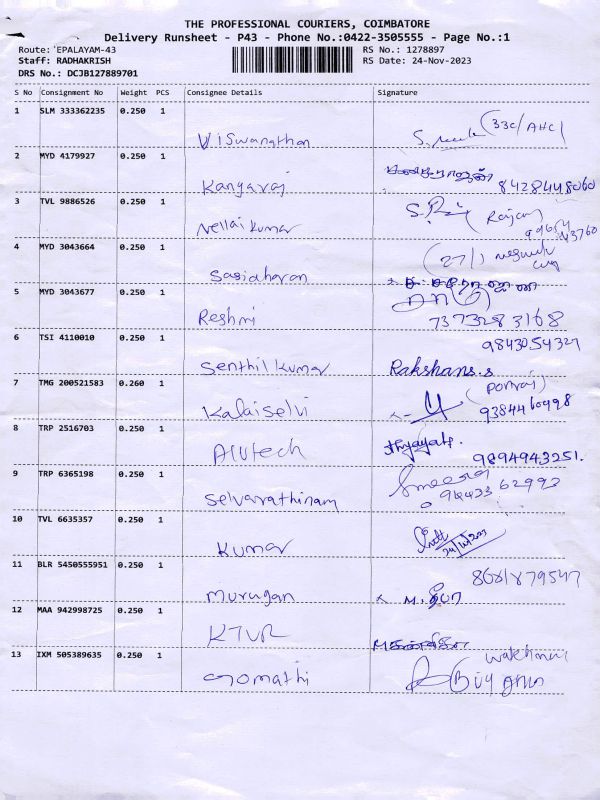 THE PROFESSIONAL COURIERS, COIMBATORE
Delivery Runsheet - P43 - Phone No.:0422-3505555 - Page No.:1
Route: 'EPALAYAM-43 RS No.: 1278897
Staff: RADHAKRISH RS Date: 24-Nov-2023
DRS No.: DCJB127889701
S No Consignment No Weight PCS Consignee Details Signature
1 SLM 333362235 0.250 1
Viswanathan (33C/AHC)
2 MYD 4179927 0.250 1
Kangaraj 8428448060
3 TVL 9886526 0.250 1
Nellai Kumar
4 MYD 3043664 0.250 1
Sasidharan
5 MYD 3043677 0.250 1
Reshmi 7373283168
6 TSI 4110010 0.250 1 9843054327
Senthil Kumar Rakshans.s
7 TMG 200521583 0.260 1
Kalaiselvi 9384460498
8 TRP 2516703 0.250 1
Alutech 9894943251.
9 TRP 6365198 0.250 1
Selvarathinam
10 TVL 6635357 0.250 1
Kumar
11 BLR 5450555951 0.250 1
Murugan M. தீபா
12 MAA 942998725 0.250 1
KTVR
13 IXM 505389635 0.250 1
Gomathi